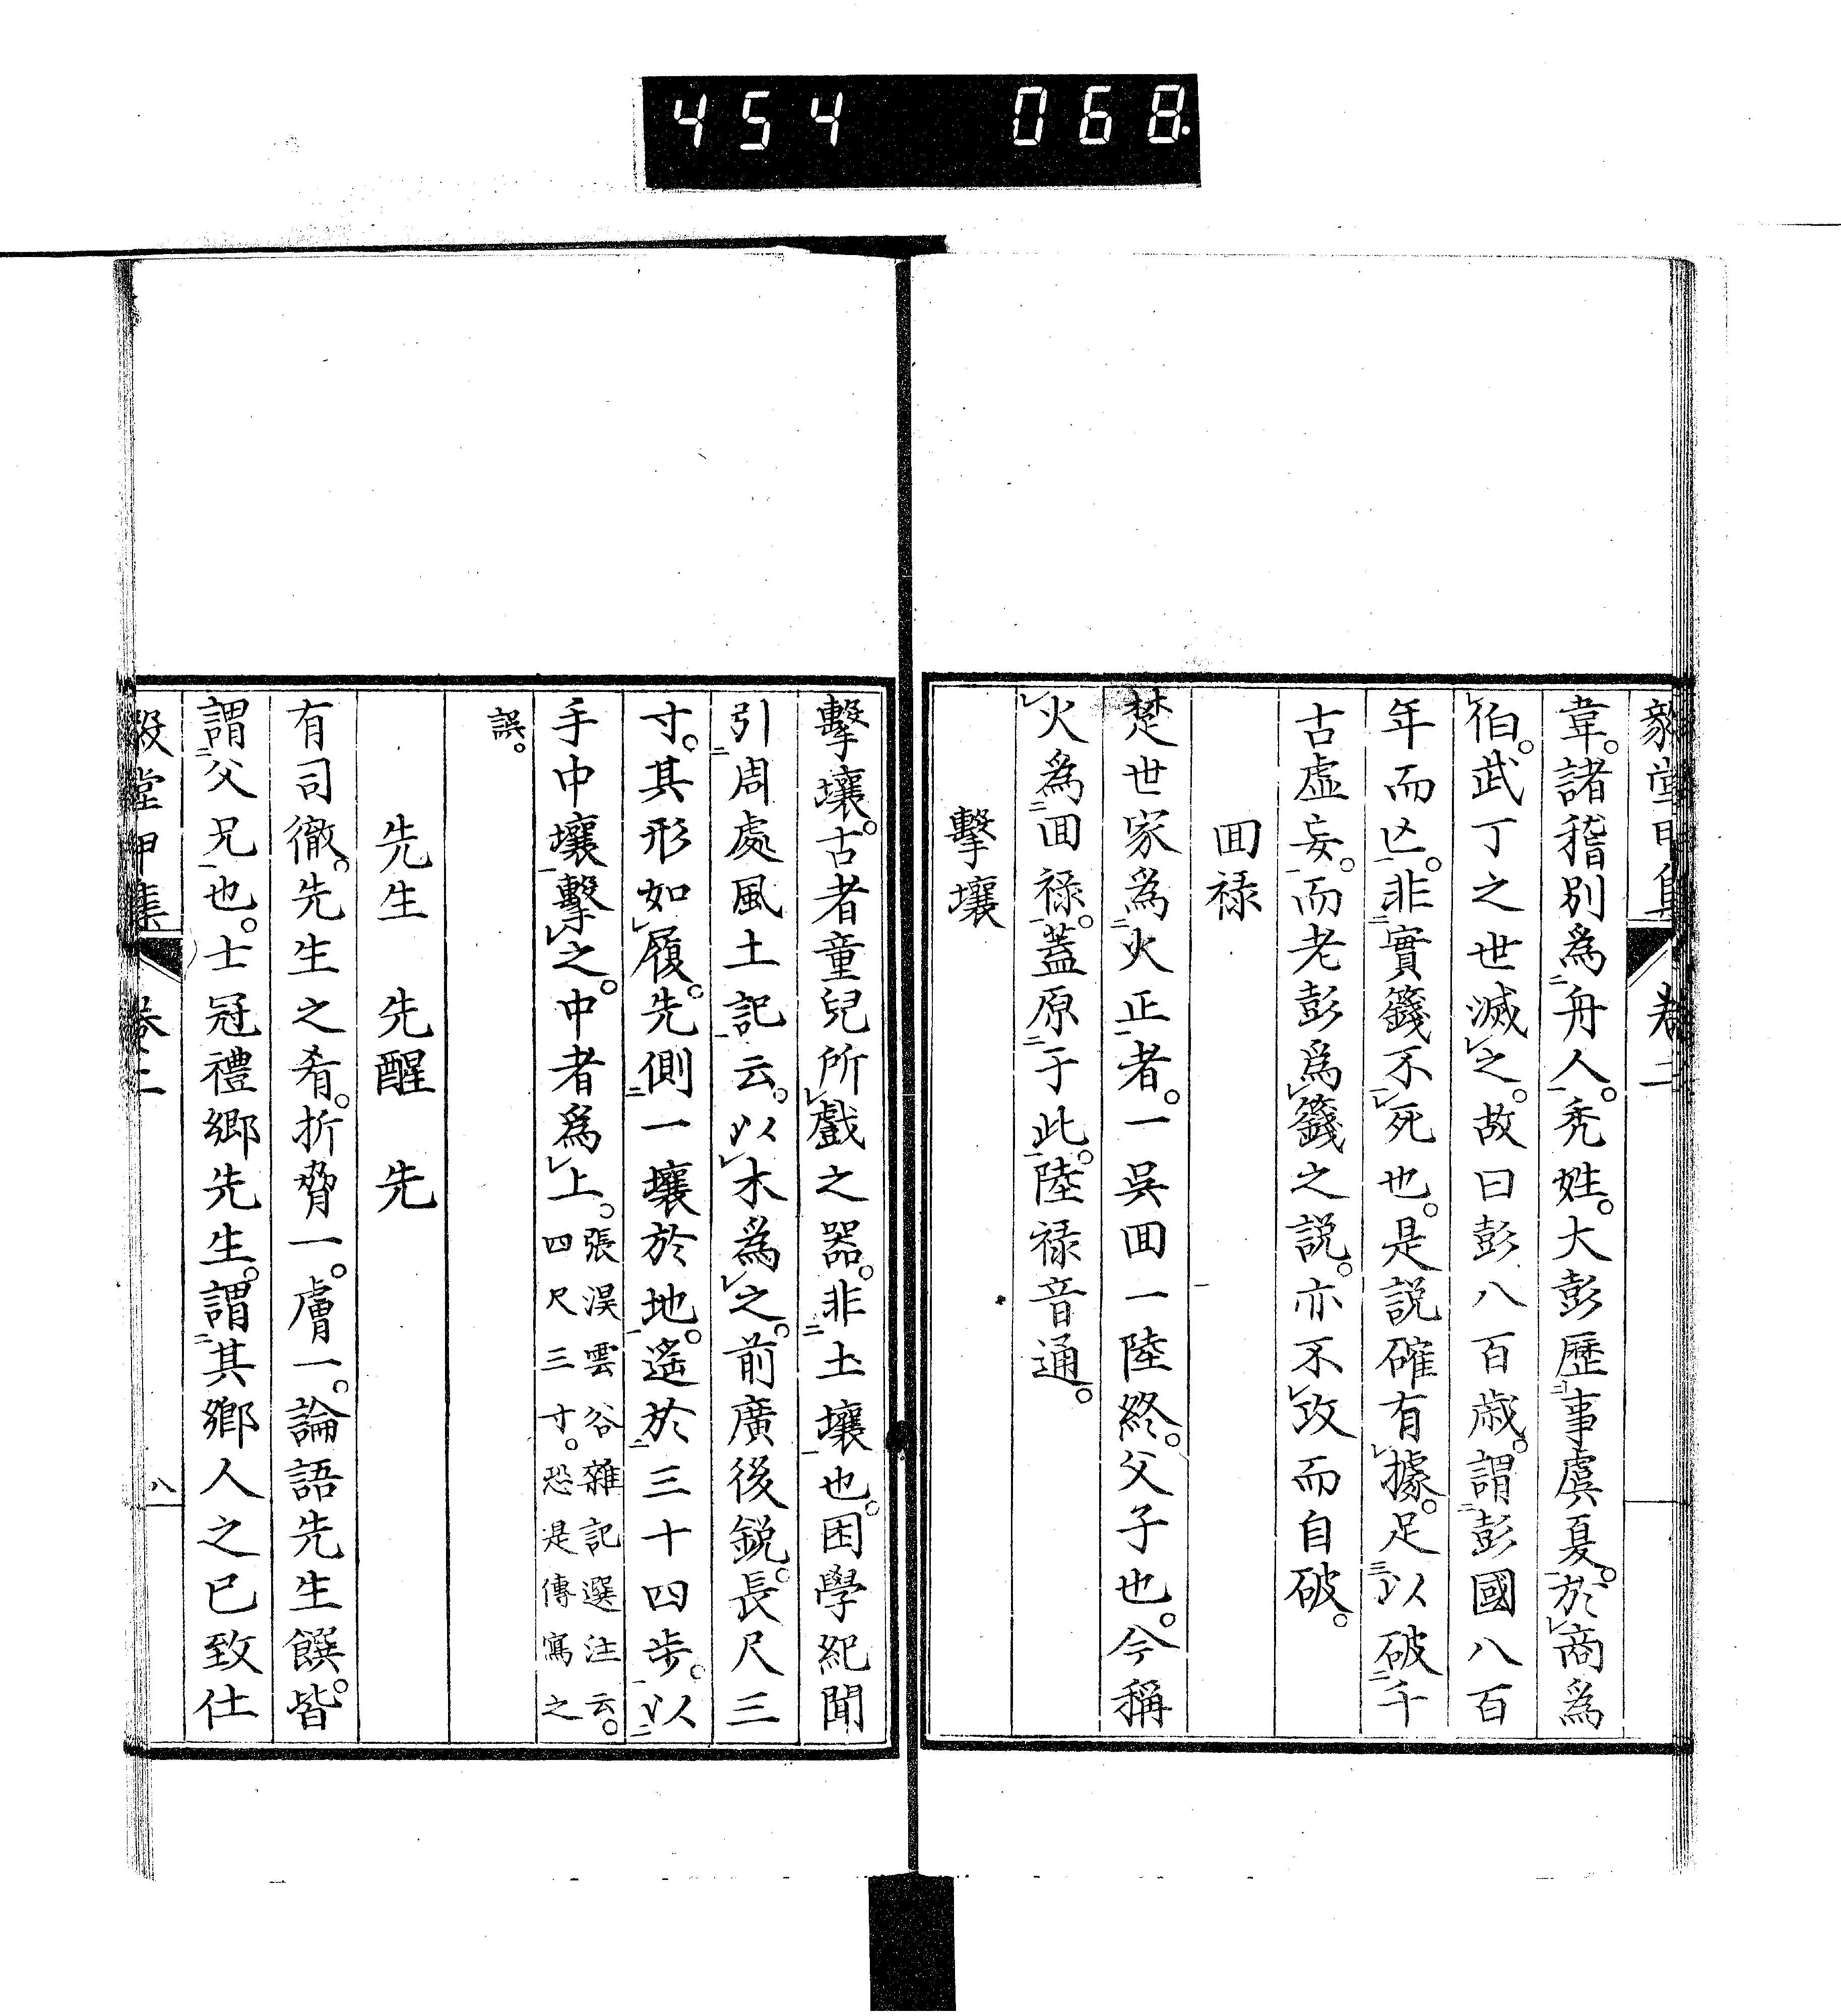 454 068
毅堂甲集 卷二
韋。諸稽別爲二舟人一。禿姓。大彭歷二事虞夏一。於レ商爲レ
伯。武丁之世滅レ之。故曰彭八百歲。謂二彭國八百
年而亡一。非二實籛不一レ死也。是說確有レ據。足三以破二千
古虛妄一。而老彭爲レ籛之說。亦不レ攻而自破。
回祿
楚世家爲二火正一者。一吳回一陸終。父子也。今稱レ
火爲二回祿一。蓋原二于此一。陸祿音通。
擊壤
擊壤。古者童兒所レ戲之器。非二土壤一也。困學紀聞
引二周處風土記一云。以レ木爲レ之。前廣後銳。長尺三
寸。其形如レ履。先側二一壤於地一。遙於二三十四步一。以二
手中壤一擊レ之。中者爲レ上。張淏雲谷雜記選注云。
四尺三寸。恐是傳寫之
誤。
先生 先醒 先
有司徹。先生之肴。折脅一。膚一。論語先生饌。皆
謂二父兄一也。士冠禮鄉先生。謂二其鄉人之已致仕
毅堂甲集 卷二 八